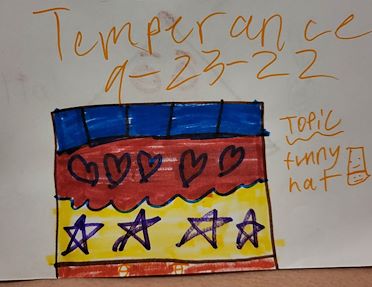 Temperance
9-23-22
Topic
funny
hat